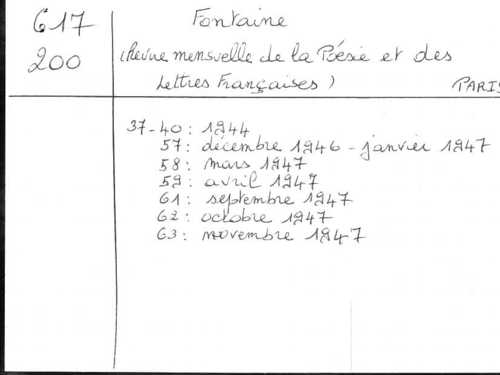 617
200
Fontaine
(Revue mensuelle de la Poésie et des
Lettres Françaises)
PARIS
37-40 : 1944
57 : décembre 1946 - janvier 1947
58 : mars 1947
59 : avril 1947
61 : septembre 1947
62 : octobre 1947
63 : novembre 1947